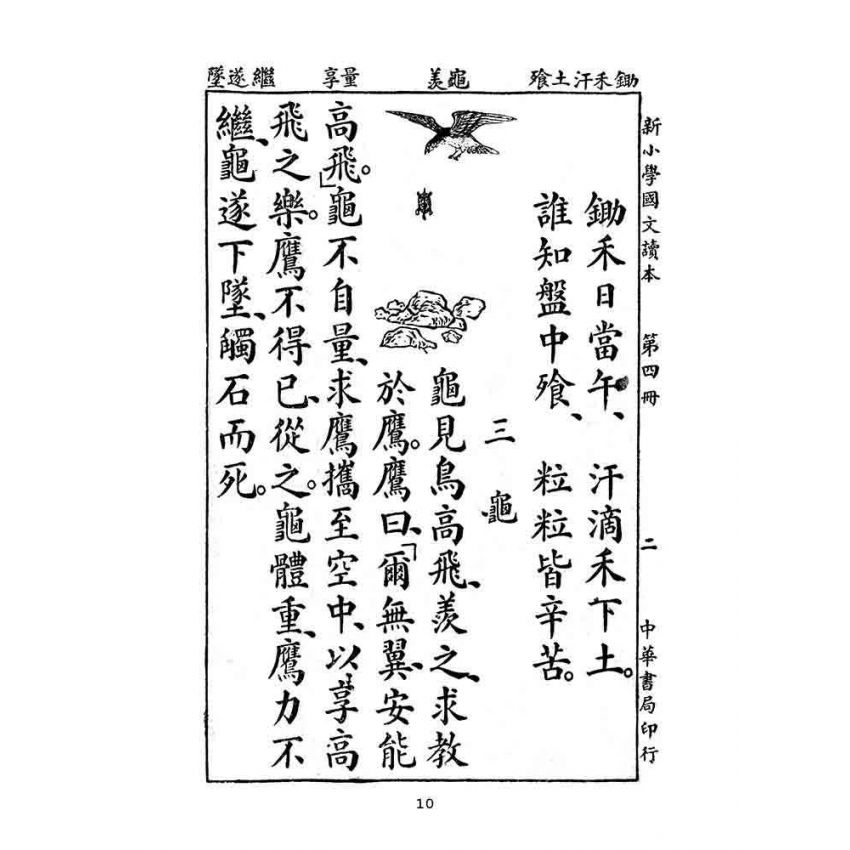 新小學國文讀本 第四冊 二 中華書局印行
鋤禾汗土飱
龜羨
量享
繼遂墜
鋤禾日當午、 汗滴禾下土。
誰知盤中飱、 粒粒皆辛苦。
三 龜
龜見鳥高飛、羨之、求教
於鷹。鷹曰、「爾無翼、安能
高飛。」龜不自量、求鷹攜至空中、以享高
飛之樂。鷹不得已、從之。龜體重、鷹力不
繼、龜遂下墜、觸石而死。
10